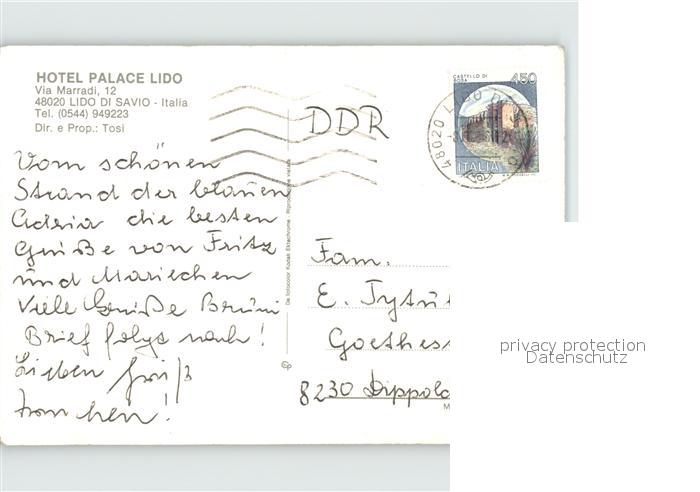 HOTEL PALACE LIDO
Via Marradi, 12
48020 LIDO DI SAVIO - Italia
Tel. (0544) 949223
Dir. e Prop.: Tosi
DDR
CASTELLO DI
450
ITALIA
48020 LIDO DI
Vom schönen
Strand der blauen
Adria die besten
Grüße von Fritz
und Mariechen
Viele Grüße Bruni
Brief folgt nach!
Lieben Gruß
De fotocolor Kodak Ektachrome - Riproduzione vietata
Fam.
E. Tytu
Goethes
8230 Dippold
privacy protection
Datenschutz